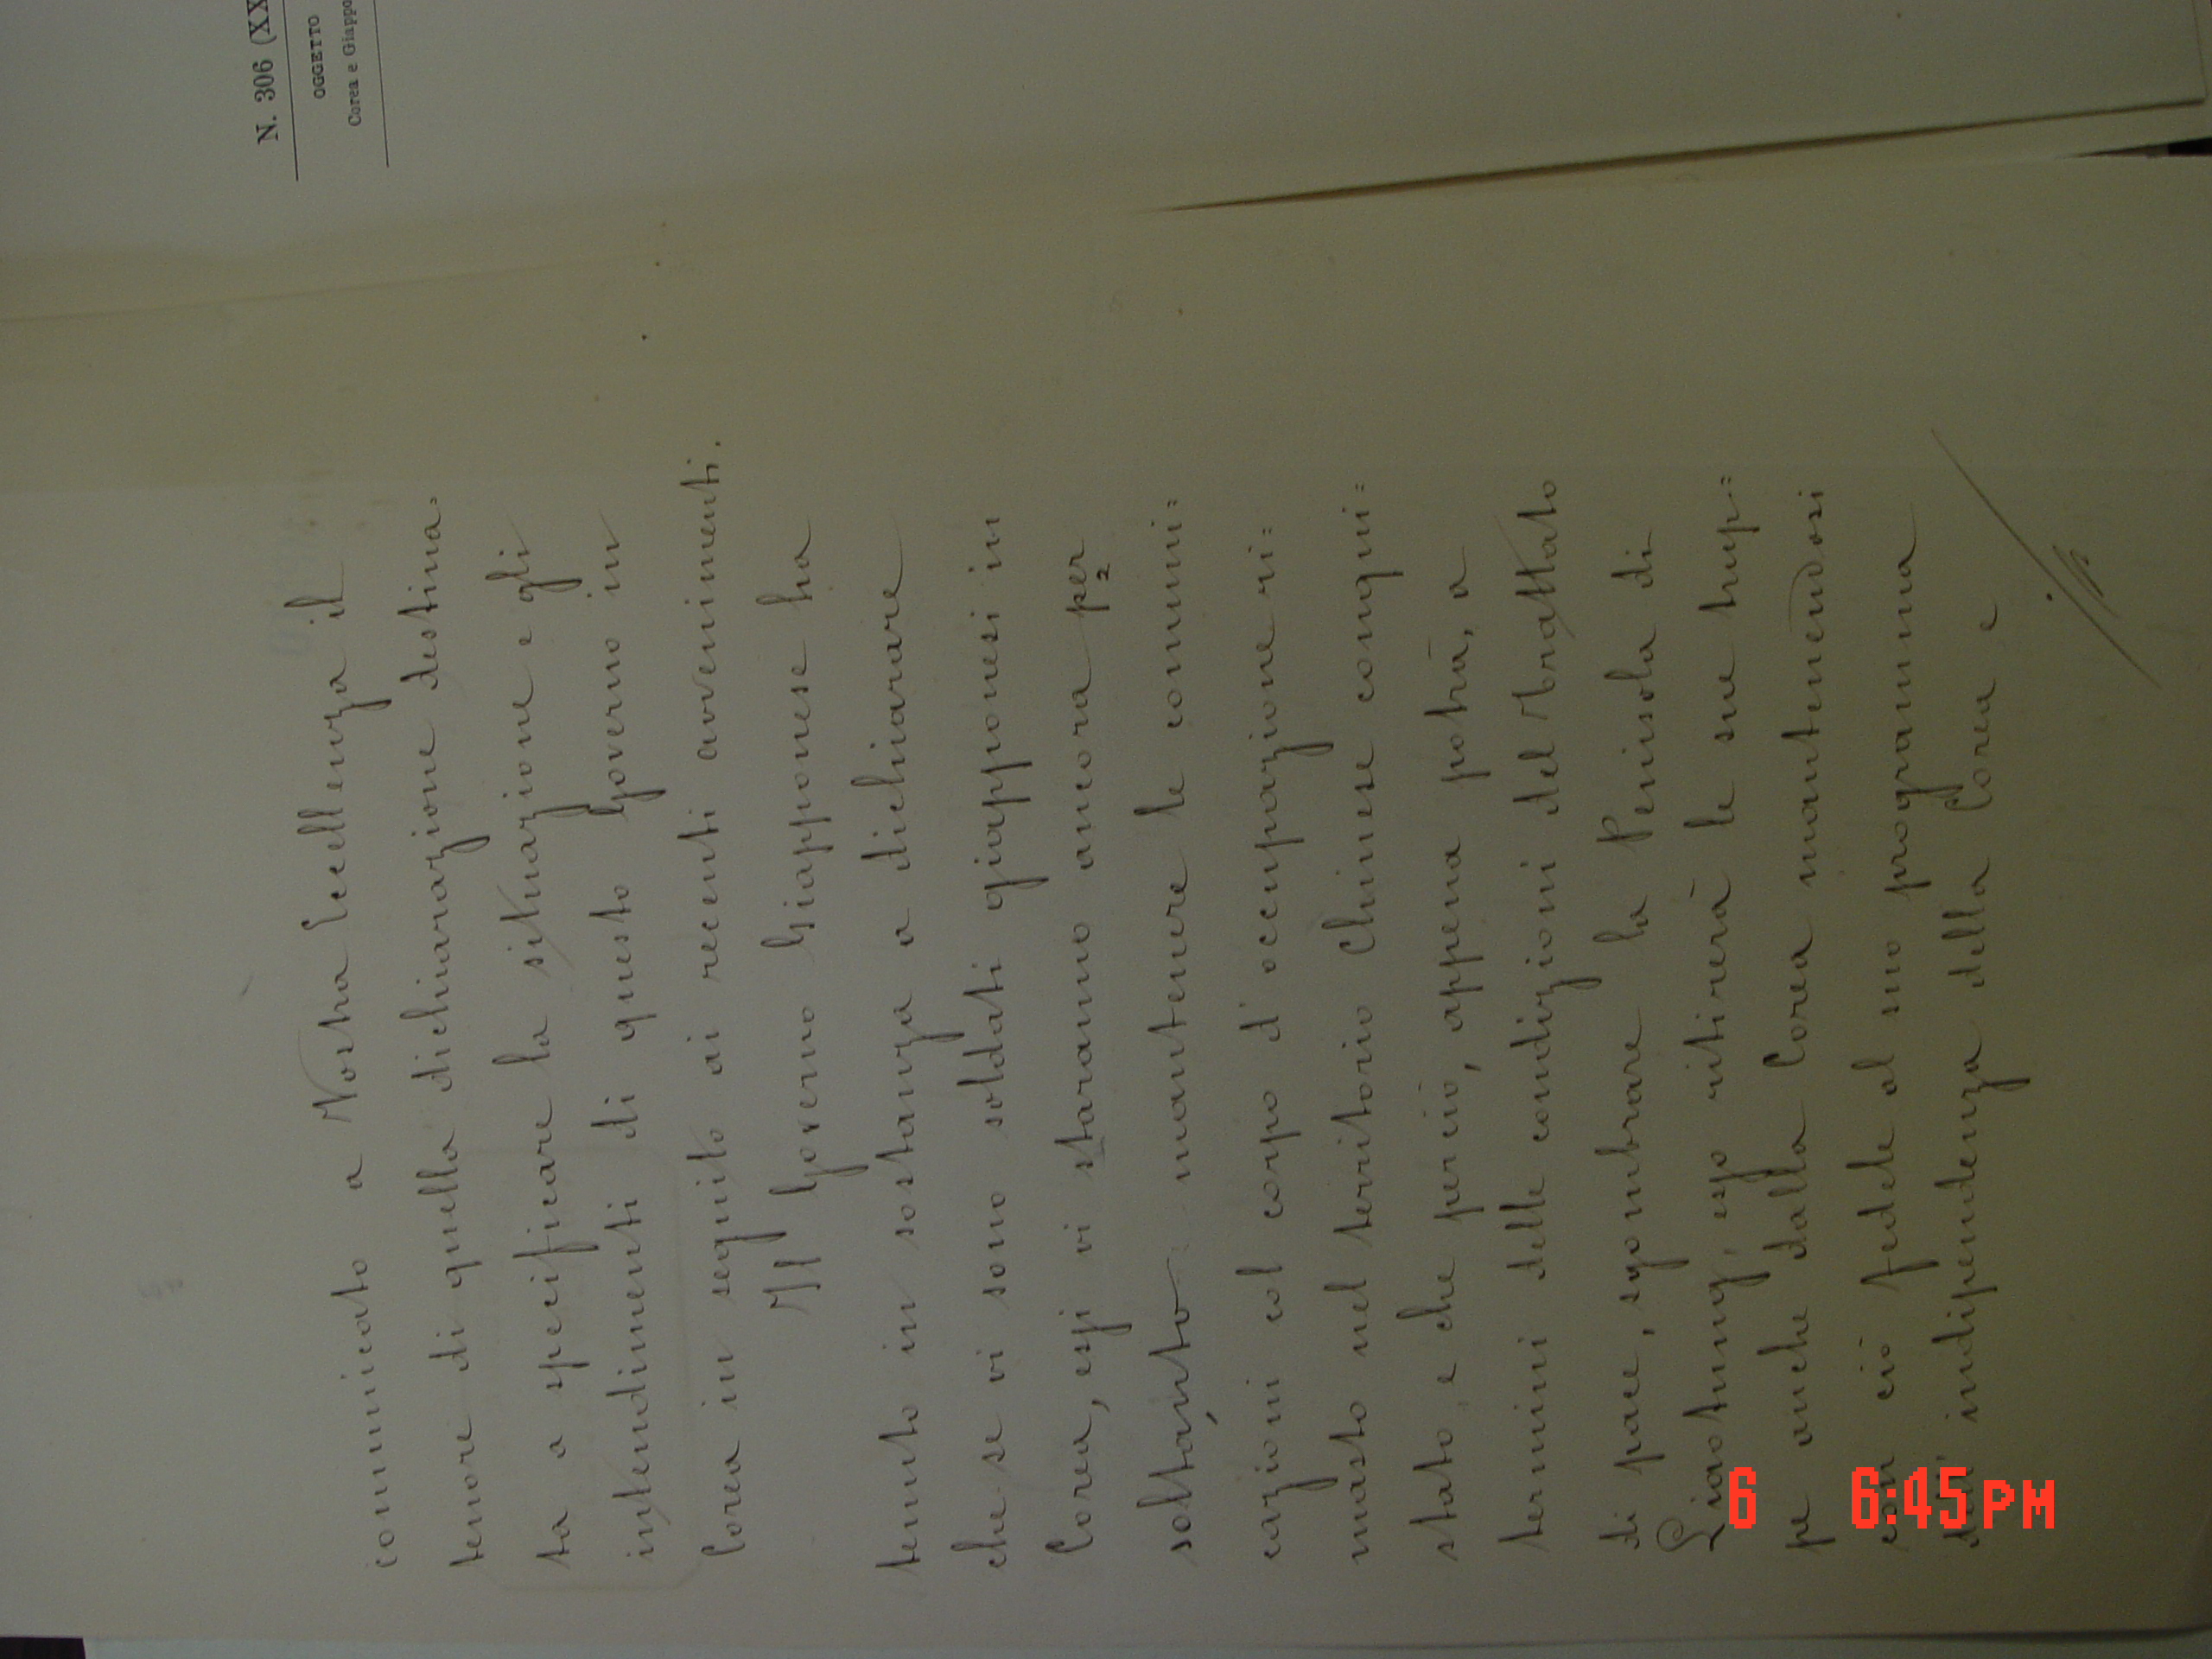 N. 306 (XX
OGGETTO
Corea e Giappo
comunicato a Vostra Eccellenza il
tenore di quella dichiarazione destina=
ta a specificare la situazione e gli
intendimenti di questo Governo in
Corea in seguito ai recenti avvenimenti.
Il Governo Giapponese ha
tenuto in sostanza a dichiarare
che se vi sono soldati giapponesi in
Corea, essi vi staranno ancora per
soltanto mantenere le comuni=
cazioni col corpo d'occupazione ri=
masto nel territorio Chinese conqui=
stato, e che perciò, appena potrà, a
termini delle condizioni del Trattato
di pace, sgombrare la Penisola di
Liaotung, esso ritirerà le sue trup=
pe anche dalla Corea mantenendosi
con ciò fedele al suo programma
dell'indipendenza della Corea e
6 6:45PM